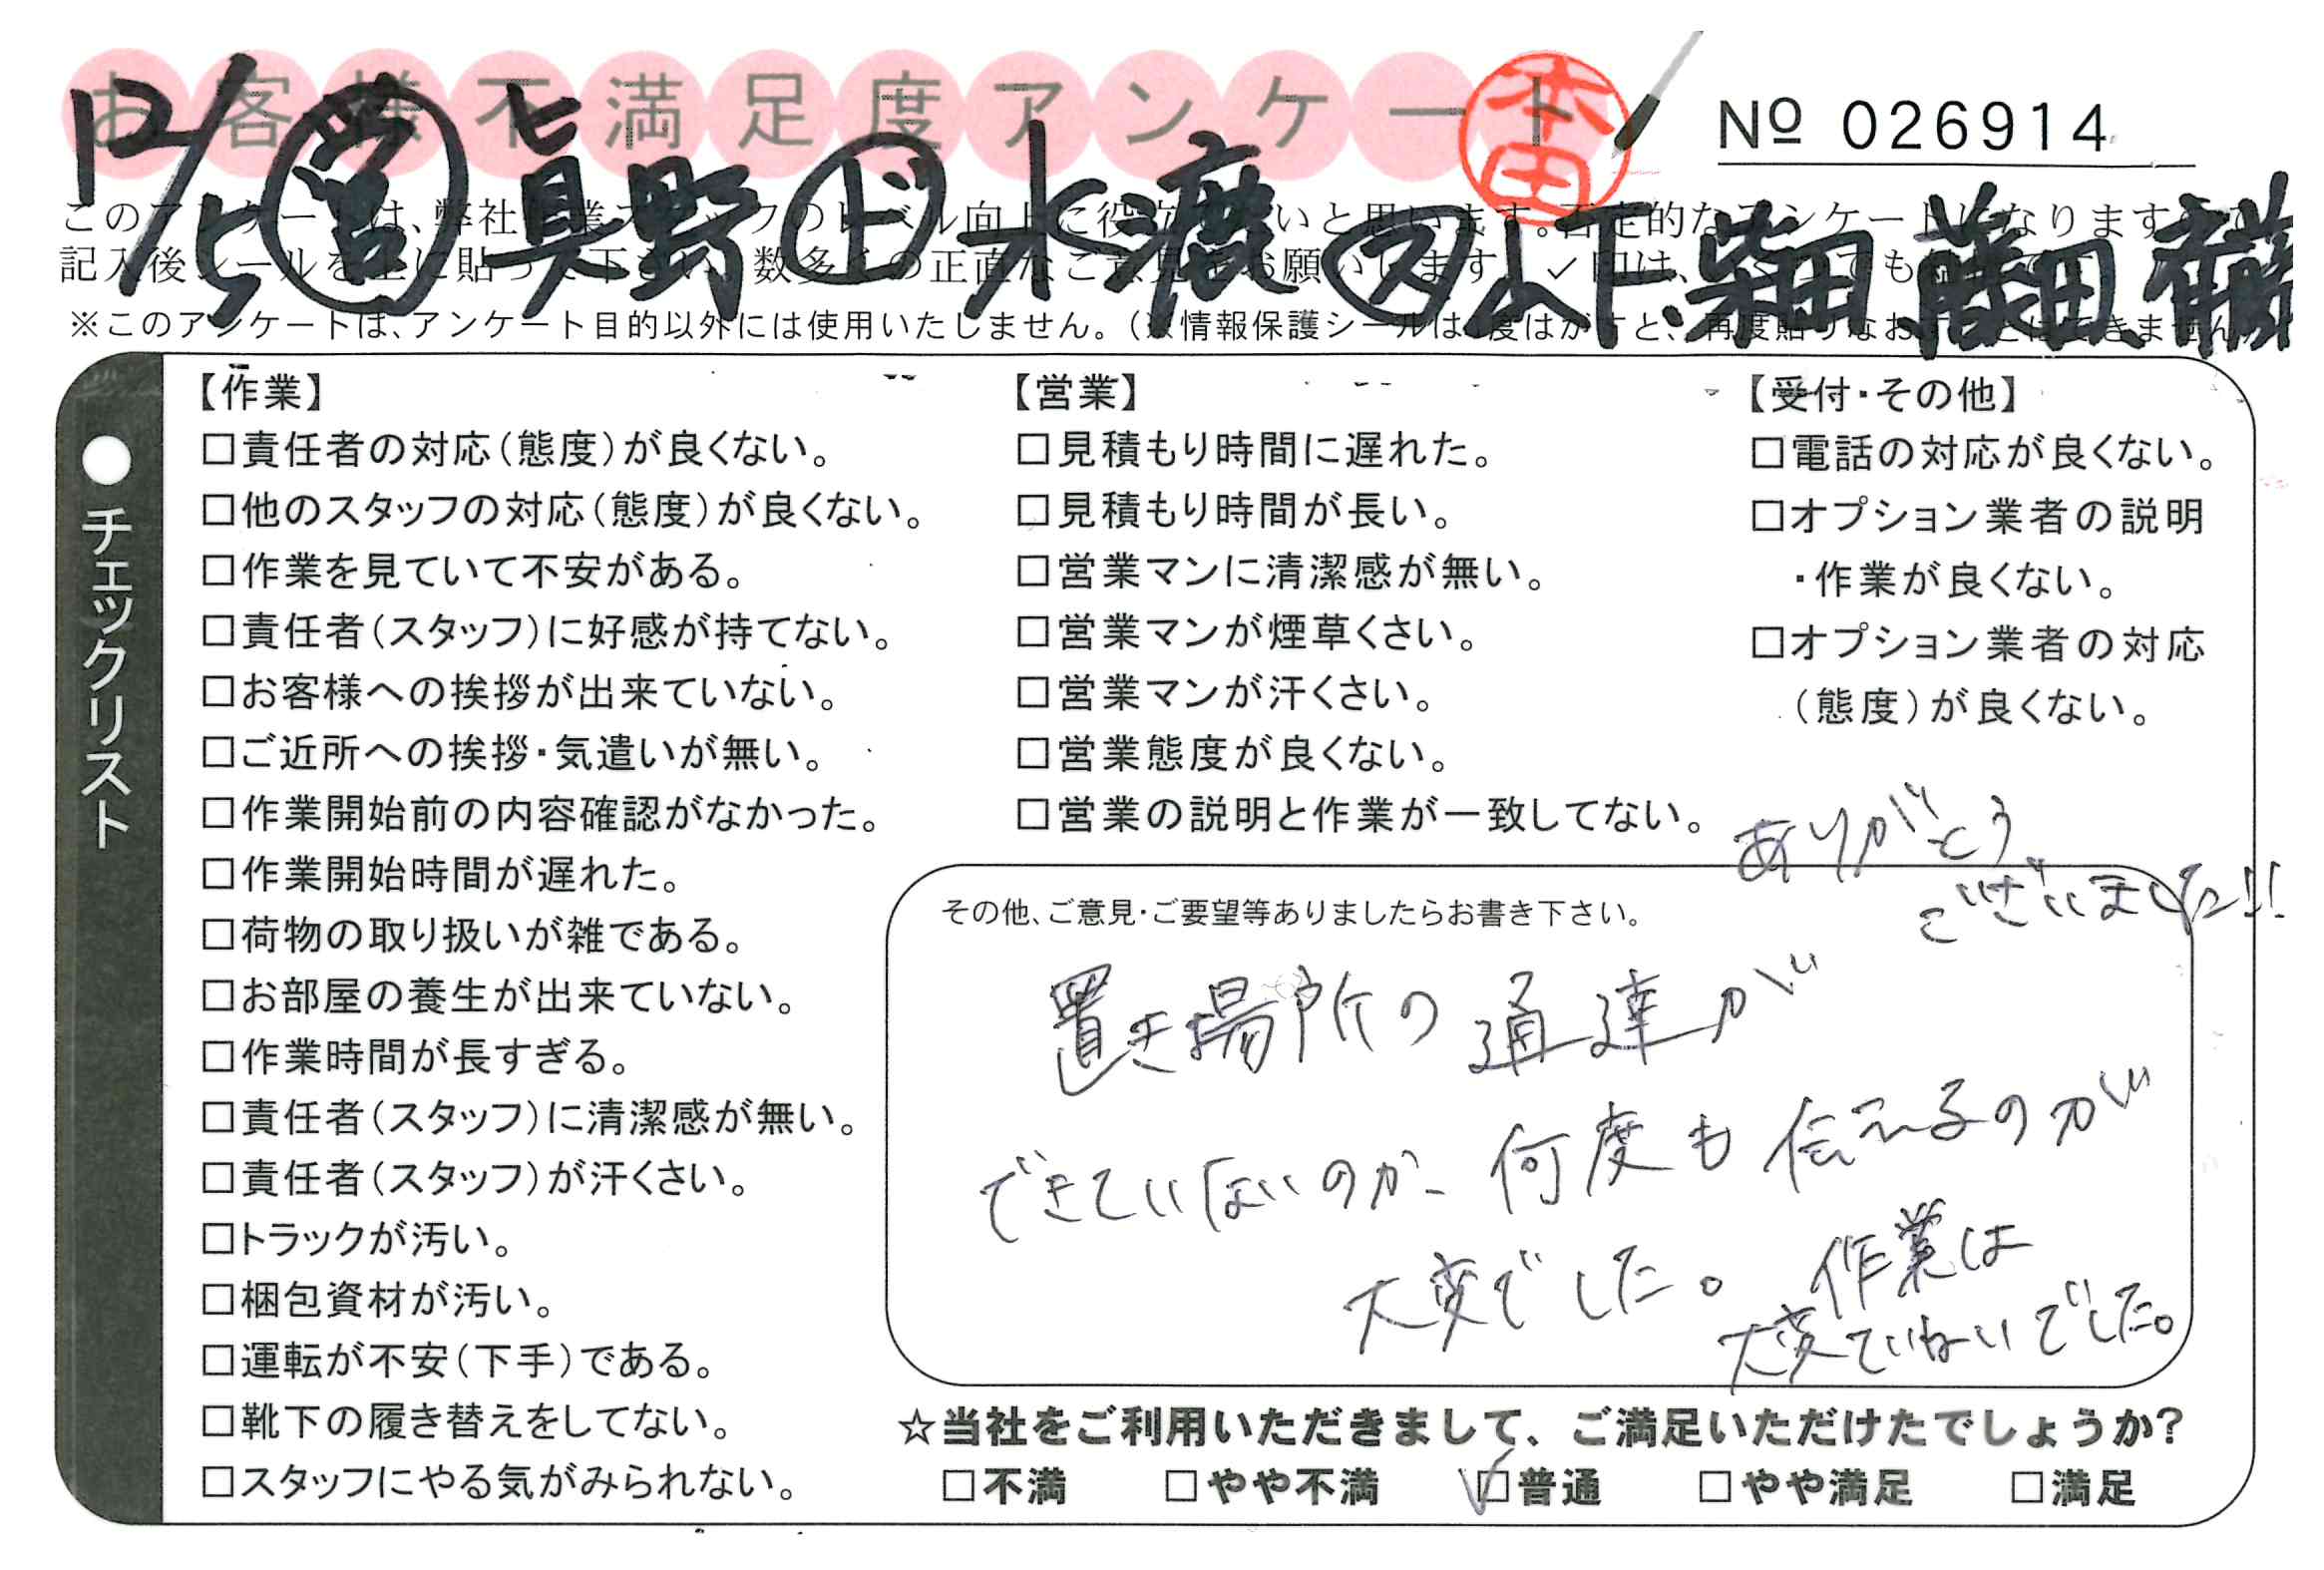 お客様不満足度アンケート
本田
№ 026914
12/5 営 眞野 ド 水漉 ス 山下、柴田、藤田、齋藤
このアンケートは、弊社
記入後シールを上に貼って下さい。数多くの正直なご意見をお願いします
※このアンケートは、アンケート目的以外には使用いたしません。(※情報保護シールは1度はがすと、再度貼りなおすことはできません)
●チェックリスト
【作業】
□責任者の対応(態度)が良くない。
□他のスタッフの対応(態度)が良くない。
□作業を見ていて不安がある。
□責任者(スタッフ)に好感が持てない。
□お客様への挨拶が出来ていない。
□ご近所への挨拶・気遣いが無い。
□作業開始前の内容確認がなかった。
□作業開始時間が遅れた。
□荷物の取り扱いが雑である。
□お部屋の養生が出来ていない。
□作業時間が長すぎる。
□責任者(スタッフ)に清潔感が無い。
□責任者(スタッフ)が汗くさい。
□トラックが汚い。
□梱包資材が汚い。
□運転が不安(下手)である。
□靴下の履き替えをしてない。
□スタッフにやる気がみられない。
【営業】
□見積もり時間に遅れた。
□見積もり時間が長い。
□営業マンに清潔感が無い。
□営業マンが煙草くさい。
□営業マンが汗くさい。
□営業態度が良くない。
□営業の説明と作業が一致してない。
【受付・その他】
□電話の対応が良くない。
□オプション業者の説明
・作業が良くない。
□オプション業者の対応
(態度)が良くない。
ありがとう
ございました!!
その他、ご意見・ご要望等ありましたらお書き下さい。
置き場所の通達が
できていないのか、何度も伝えるのが
大変でした。作業は
大変ていねいでした。
☆当社をご利用いただきまして、ご満足いただけたでしょうか?
□不満 □やや不満 ☑普通 □やや満足 □満足